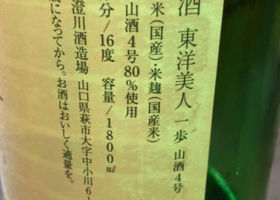 酒 東洋美人 一歩 山酒4号
米(国産)・米麹(国産米)
山酒4号80%使用
分/16度 容量/1800ml
澄川酒造場 山口県萩市大字中小川61
になってから。お酒はおいしく適量を。